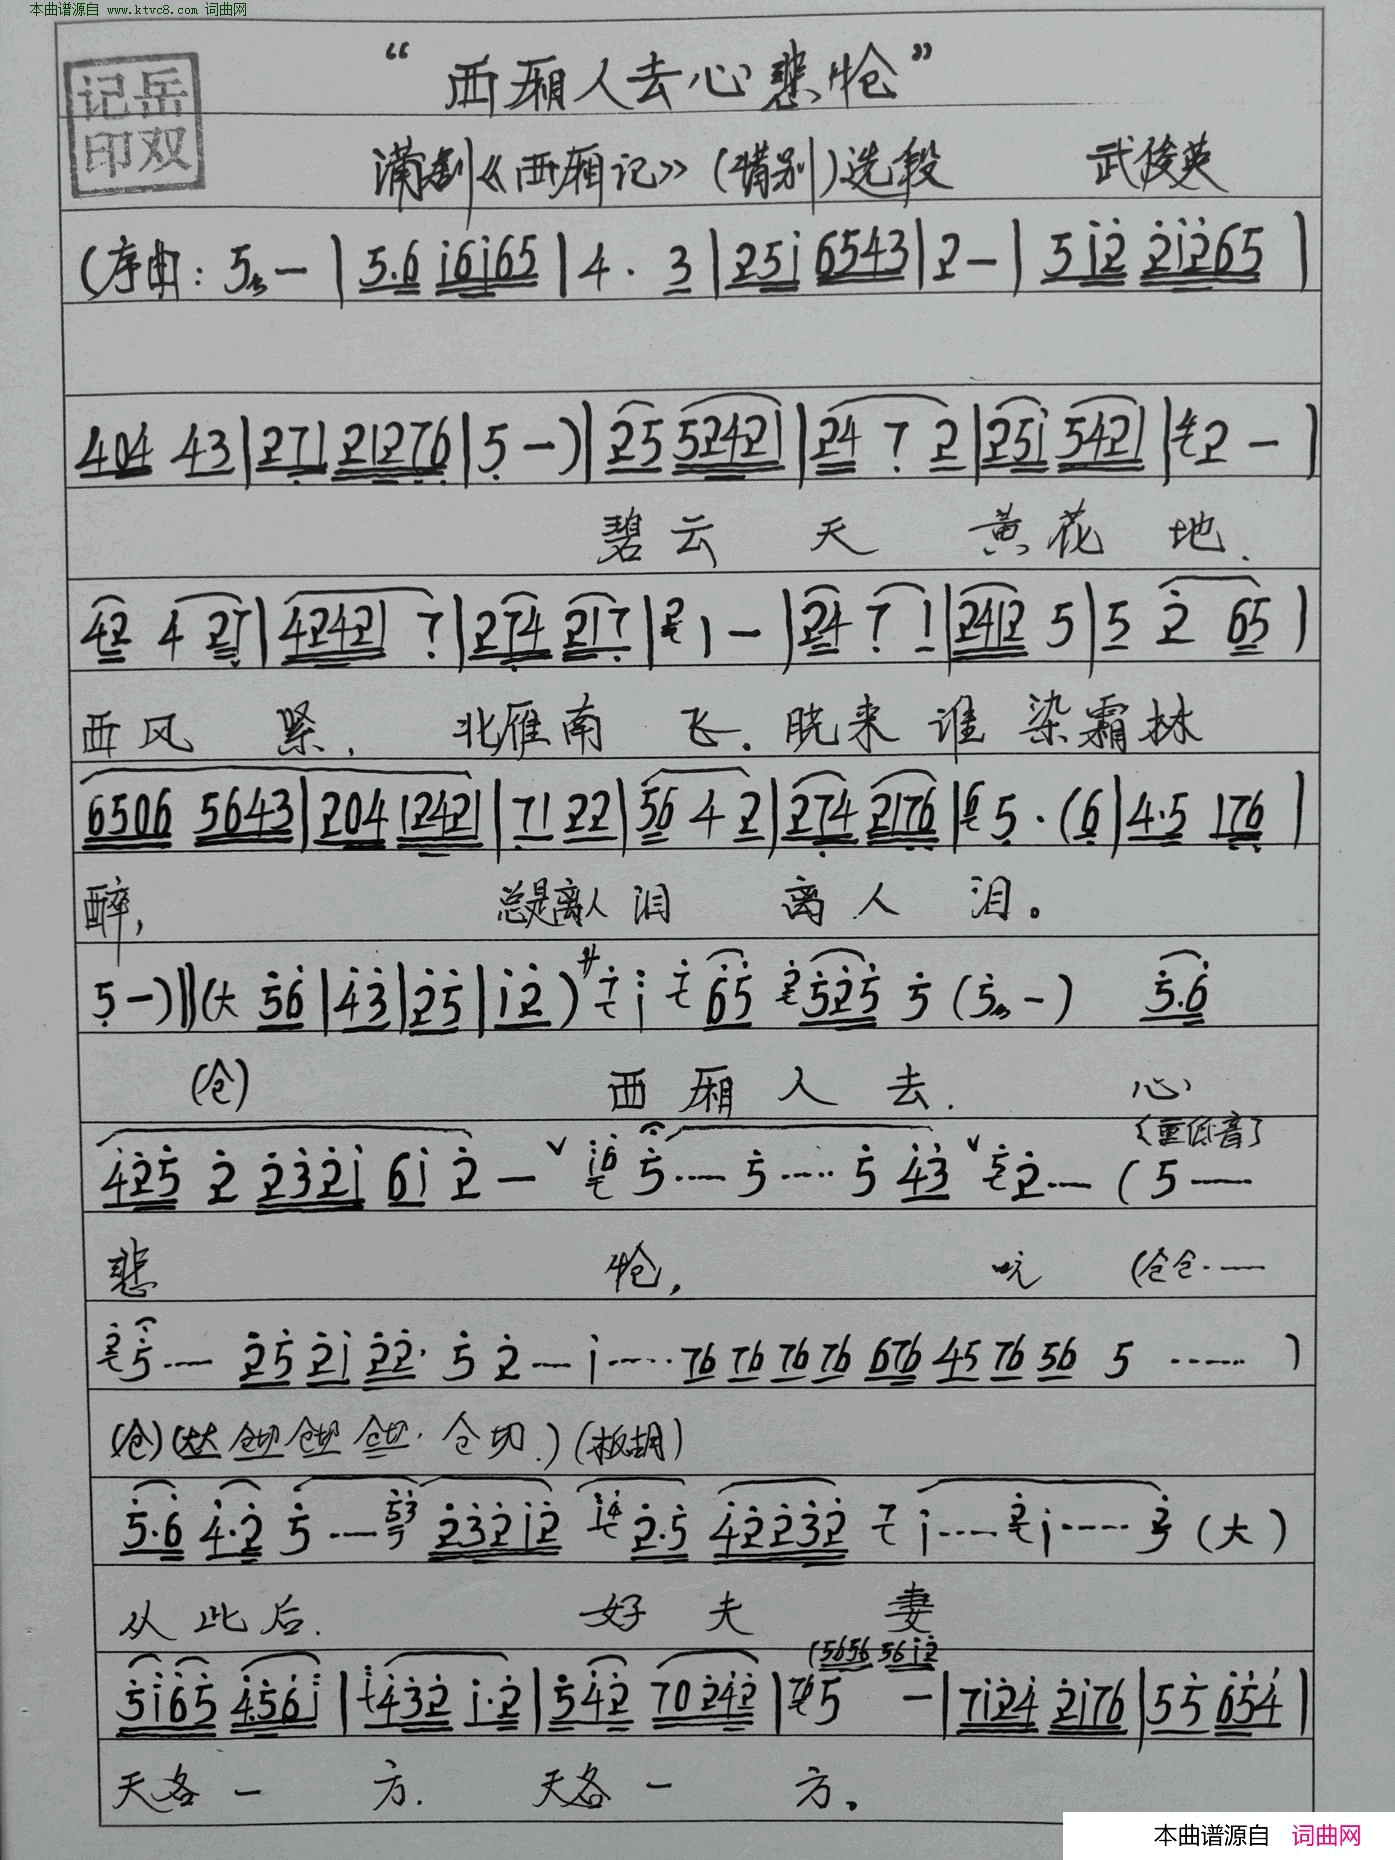 本曲谱源自 www.ktvc8.com 词曲网
"西厢人去心悲怆"
记岳
印双
蒲剧《西厢记》(惜别)选段 武俊英
(序曲: 5 — | 5.6 i6i65 | 4 . 3 | 25i 6543 | 2 — | 5 i2 2i265 |
404 43 | 271 21276 | 5 —) | 25 52421 | 24 7 2 | 251 5421 | 2 — |
碧云 天 黄花 地.
42 4 27 | 42421 7 | 274 217 | 1 — | 24 7 1 | 2412 5 | 5 2 65 |
西风 紧, 北雁南 飞. 晓来 谁 染霜林
6506 5643 | 204 12421 | 71 22 | 56 4 2 | 274 2176 | 5 . (6 | 4.5 176 |
醉, 总是离人 泪 离人 泪。
5 —) ‖ (大 56 | 43 | 25 | i2 ) 廾 7 i 7 65 2 525 5 (5 —) 5.6
(仓) 西厢人去. 心
(重低音)
425 2 2321 6i 2 — ∨ i6 5…… 5…… 5 43 ∨ 5 2…… ( 5 ……
悲 怆, 吭 (仓仓……
2 5…… 25 2i 22. 5 2…… i…… 76 76 76 76 676 45 76 56 5 …… )
(仓) (大大 仓切 仓切 仓切. 仓切.) (板胡)
5.6 4.2 5 …… 53 232i2 i4 2.5 42232 7 i…… 2 i…… 2 (大)
从此后. 好夫 妻
(5656 56i2
5i65 456i | i 432 i.2 | 542 70 242 | 76 5 — | 7i24 2i76 | 55 654 |
天各一 方. 天各一 方。
本曲谱源自 词曲网